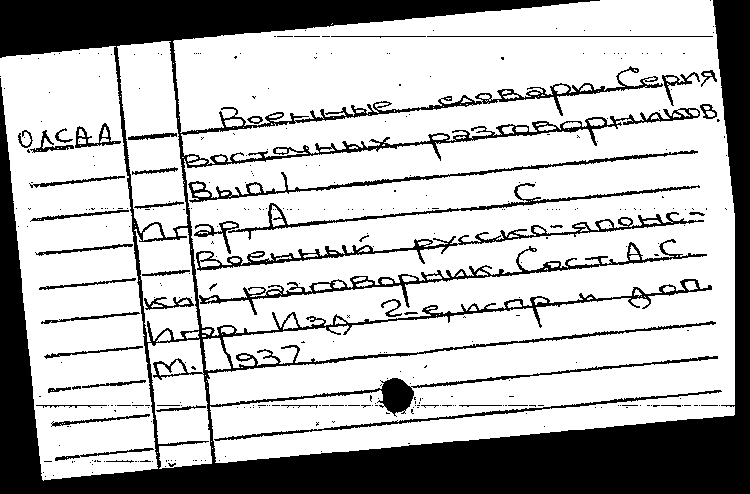 Военные словари. Серия
ОЛСАА
восточных разговорников.
Вып. 1.
Игар, А С
Военный русско-японс-
кий разговорник. Сост. А.С.
Игар. Изд. 2-е, испр. и доп.
М. 1937.